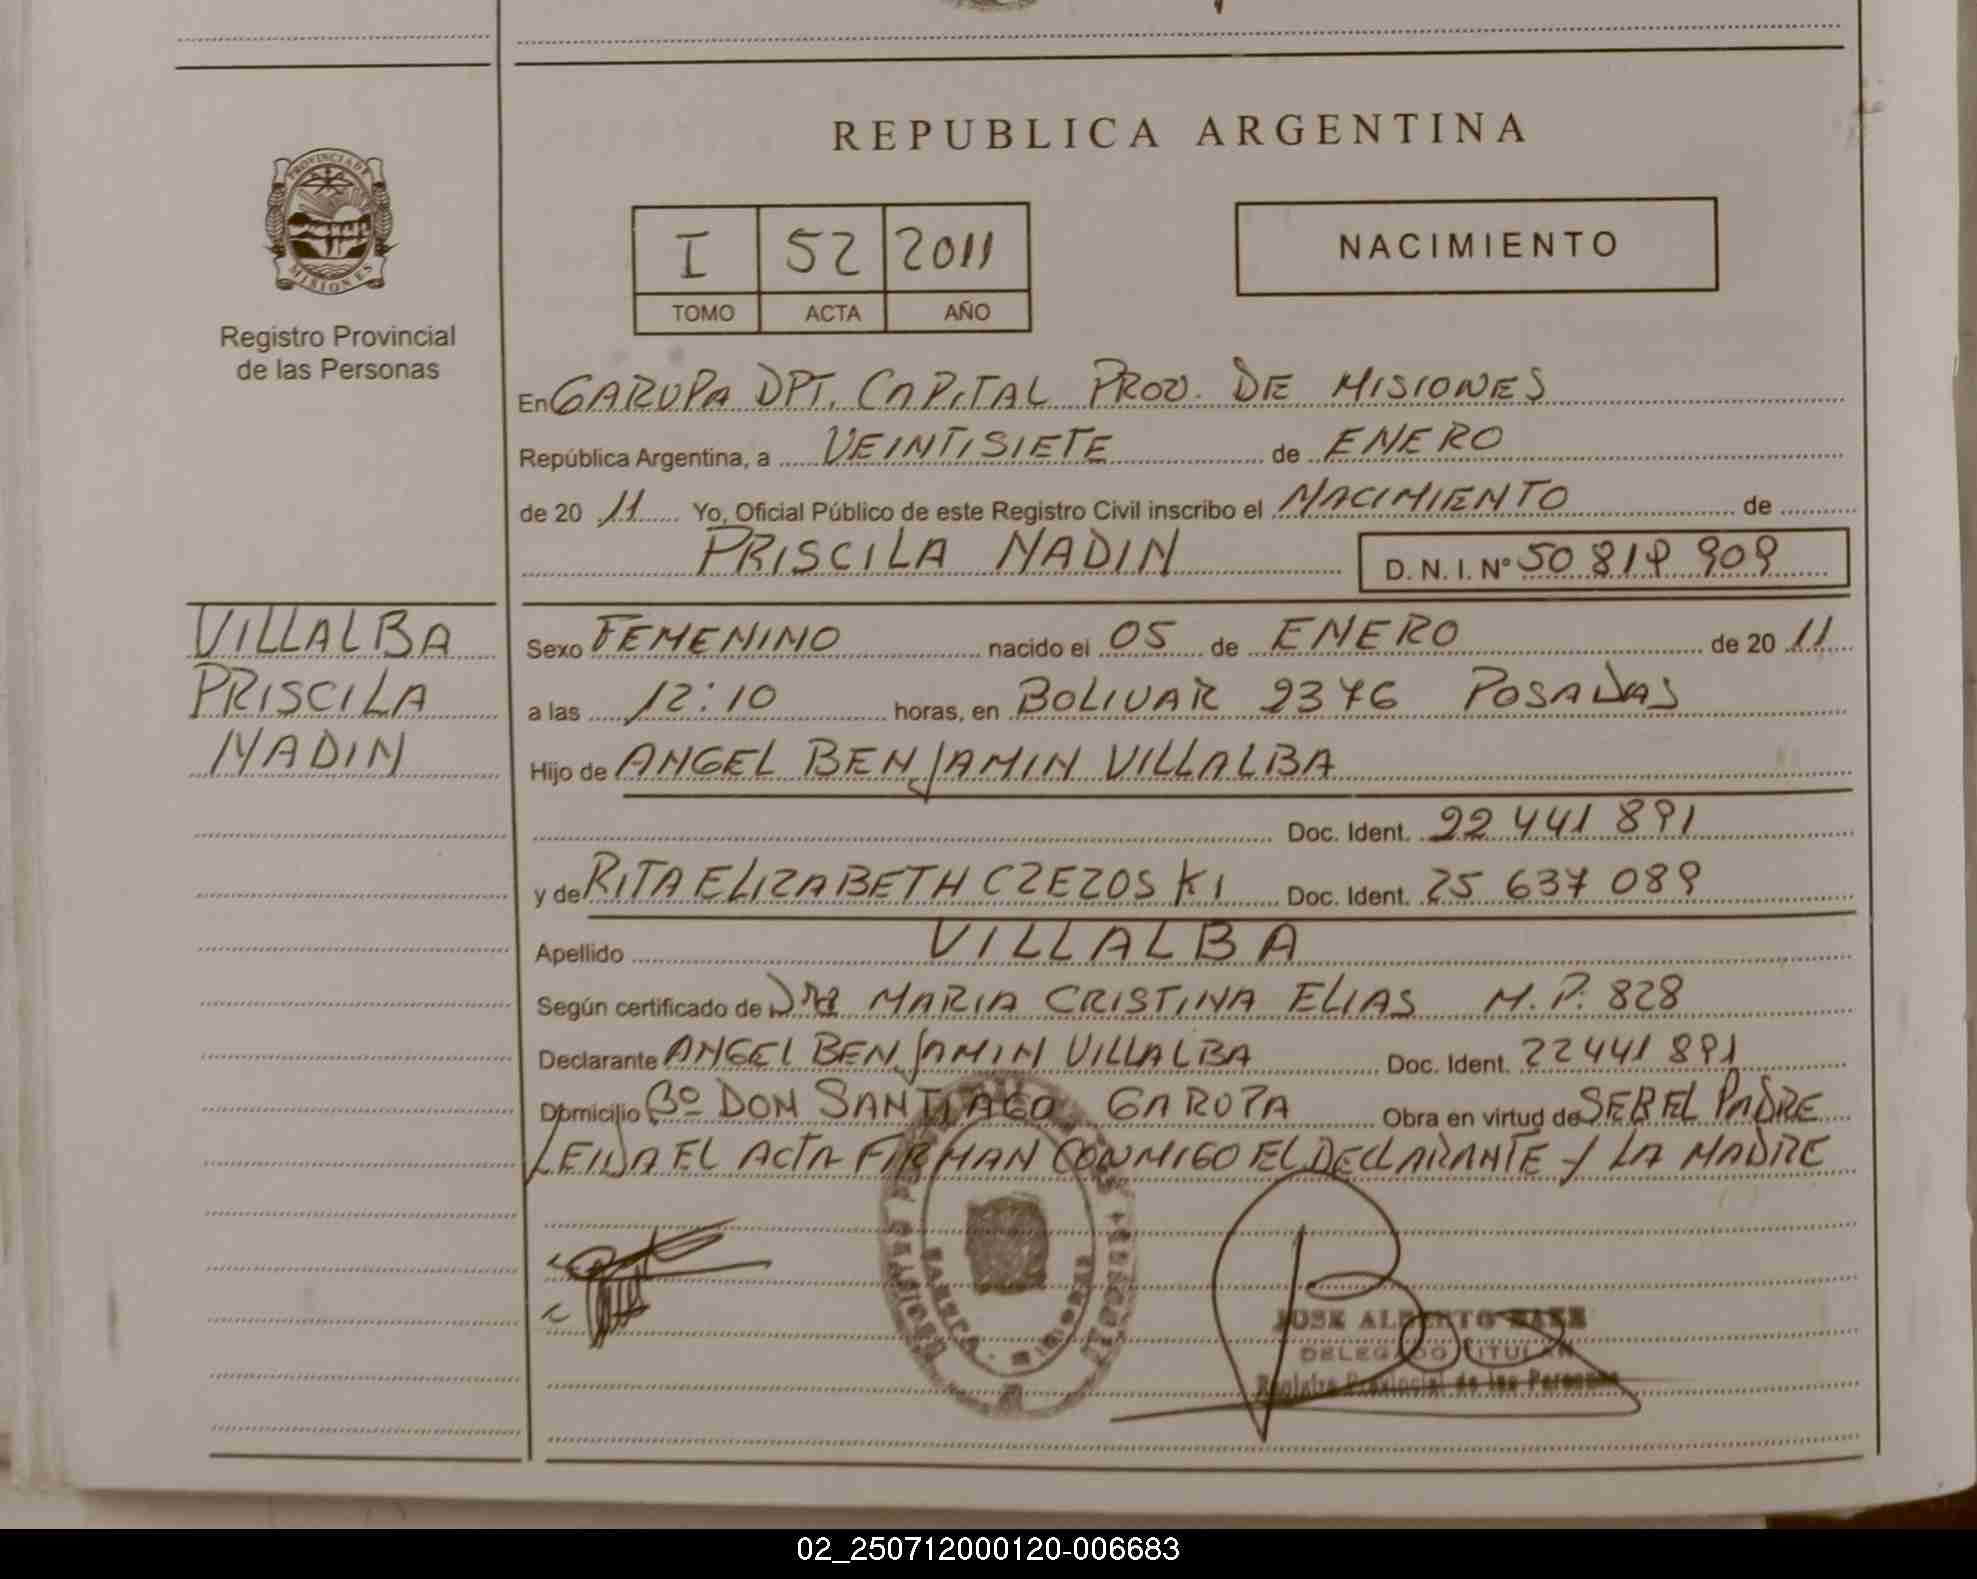 REPUBLICA ARGENTINA
PROVINCIA DE MISIONES
Registro Provincial
de las Personas
I 52 2011
TOMO ACTA AÑO
NACIMIENTO
En GARUPA DPT. CAPITAL PROV. DE MISIONES
República Argentina, a VEINTISIETE de ENERO
de 20 11 Yo, Oficial Público de este Registro Civil inscribo el NACIMIENTO de
PRISCILA NADIN D. N. I. Nº 50 819 909
VILLALBA
PRISCILA
NADIN
Sexo FEMENINO nacido el 05 de ENERO de 20 11
a las 12:10 horas, en BOLIVAR 2376 POSADAS
Hijo de ANGEL BENJAMIN VILLALBA
Doc. Ident. 22 441 891
y de RITA ELIZABETH CZEZOSKI Doc. Ident. 25 637 089
Apellido VILLALBA
Según certificado de Dra MARIA CRISTINA ELIAS M.P. 828
Declarante ANGEL BENJAMIN VILLALBA Doc. Ident. 22441891
Domicilio Bº DON SANTIAGO GARUPA Obra en virtud de SER EL PADRE
LEIDA EL ACTA FIRMAN CONMIGO EL DECLARANTE Y LA MADRE
JOSE ALBERTO BAEZ
DELEGADO TITULAR
Registro Provincial de las Personas
02_250712000120-006683